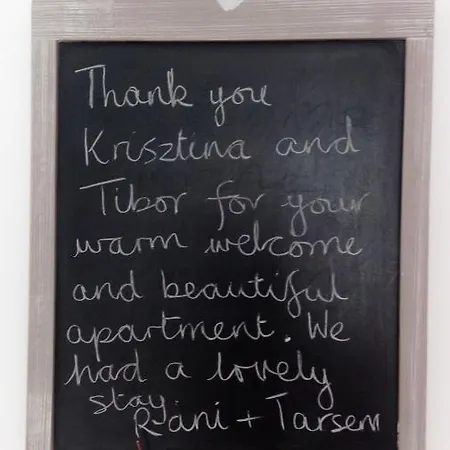 Thank you
Krisztina and
Tibor for your
warm welcome
and beautiful
apartment. We
had a lovely
stay.
Rani + Tarsem